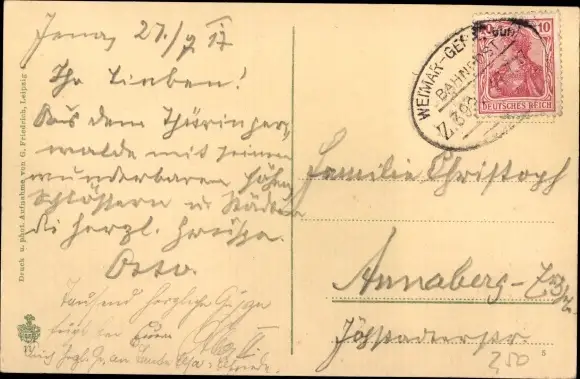 Jena, 27./9. 17
Ihr Lieben!
Aus dem Thüringer-
walde mit seinen
wunderbaren Höhn
Schlössern u. Städten
die herzl. Grüsse
Otto.
Tausend herzliche Grüsse
Euer
Druck u. phot. Aufnahme von G. Friedrich, Leipzig
IV
WEIMAR-GERA
BAHNPOST
Z. 393
10
DEUTSCHES REICH
Familie Christoph
Annaberg-
Jöhstadterstr.
5
2,50